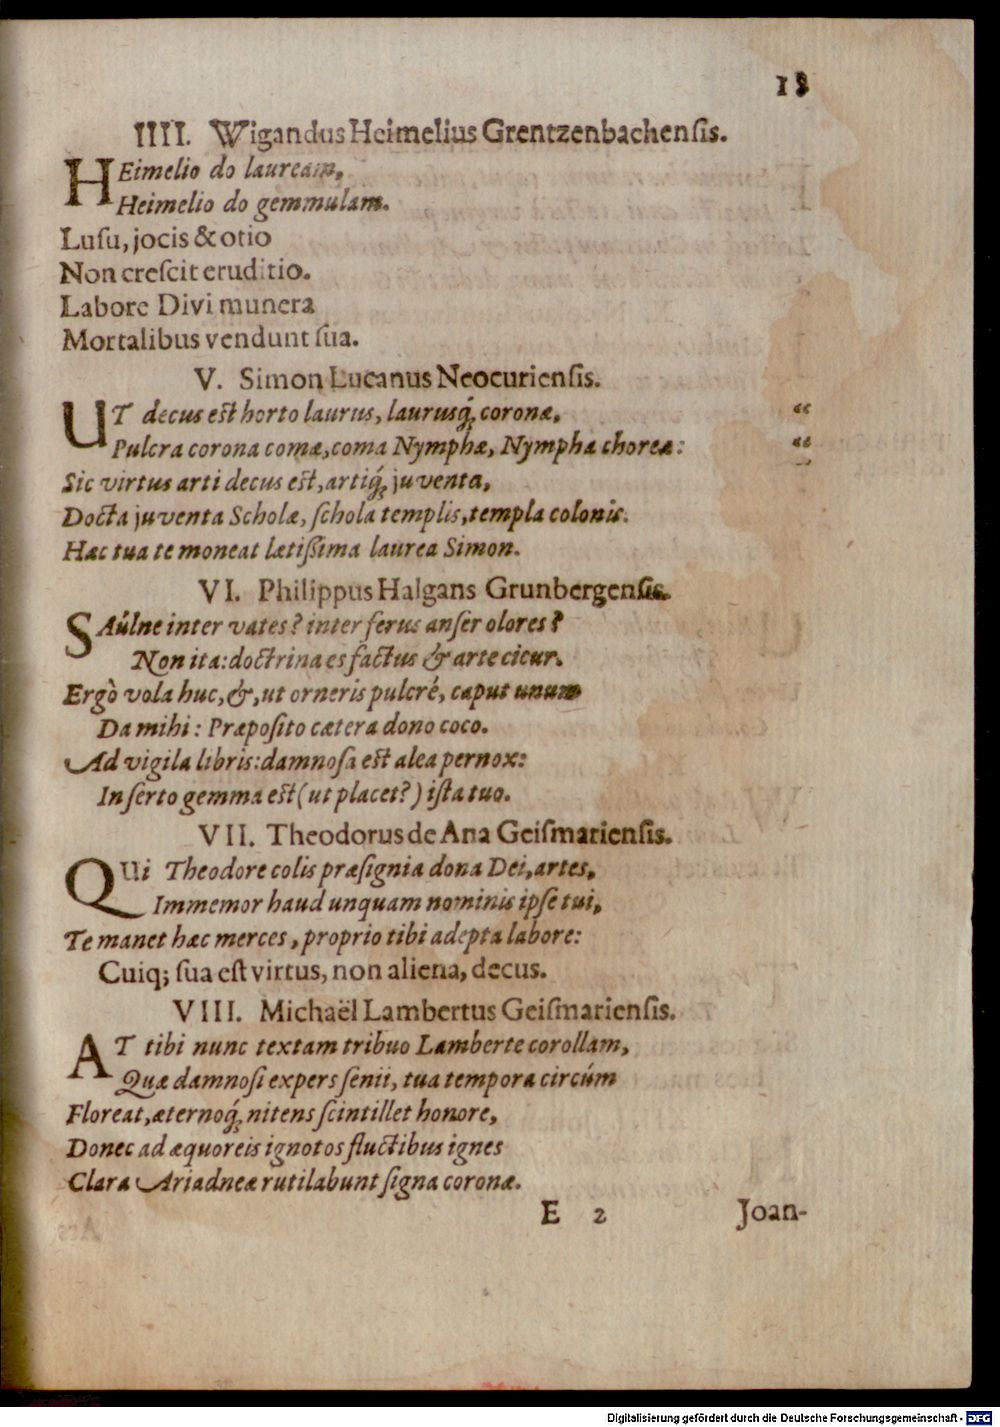 18
IIII. Wigandus Heimelius Grentzenbachensis.
HEimelio do lauream,
Heimelio do gemmulam.
Lusu, jocis & otio
Non crescit eruditio.
Labore Divi munera
Mortalibus vendunt sua.
V. Simon Lucanus Neocuriensis.
UT decus est horto laurus, laurusq́; coronæ, “
Pulcra corona comæ, coma Nymphæ, Nympha choreæ: “
Sic virtus arti decus est, artiq́; juventa,
Docta juventa Scholæ, schola templis, templa colonis.
Hæc tua te moneat lætißima laurea Simon.
VI. Philippus Halgans Grunbergensis.
SAúlne inter vates? inter ferus anser olores?
Non ita: doctrina es factus & arte cicur.
Ergò vola huc, &, ut orneris pulcré, caput unum
Da mihi: Præposito cætera dono coco.
Ad vigila libris: damnosa est alea pernox:
In serto gemma est (ut placet?) ista tuo.
VII. Theodorus de Ana Geismariensis.
QUi Theodore colis præsignia dona Dei, artes,
Immemor haud unquam nominis ipse tui,
Te manet hæc merces, proprio tibi adepta labore:
Cuiq; sua est virtus, non aliena, decus.
VIII. Michaël Lambertus Geismariensis.
AT tibi nunc textam tribuo Lamberte corollam,
Quæ damnosi expers senii, tua tempora circúm
Floreat, æternoq́; nitens scintillet honore,
Donec ad æquoreis ignotos fluctibus ignes
Clara Ariadneæ rutilabunt signa coronæ.
E 2 Joan-
Digitalisierung gefördert durch die Deutsche Forschungsgemeinschaft - DFG